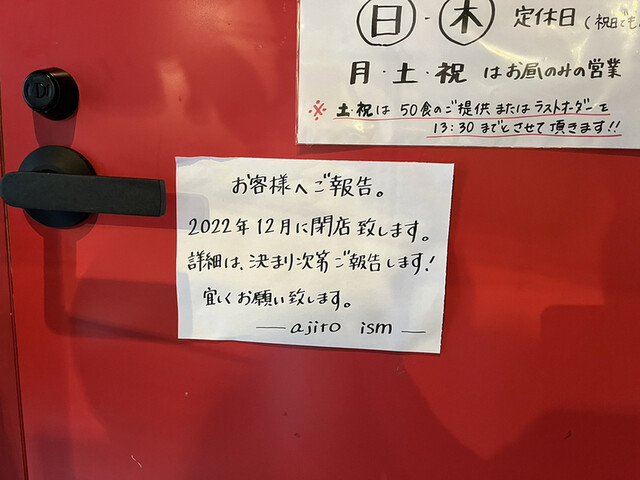 日・木 定休日(祝日でも
月・土・祝 はお昼のみの営業
※ 土・祝は 50食のご提供 またはラストオーダーを
13:30 までとさせて頂きます!!
お客様へご報告。
2022年12月に閉店致します。
詳細は、決まり次第ご報告します!
宜しくお願い致します。
— ajito ism —